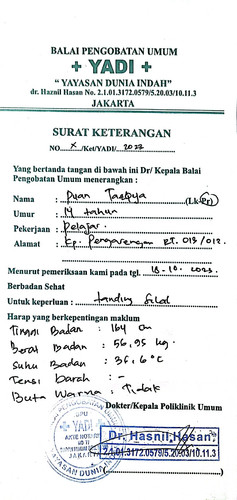 BALAI PENGOBATAN UMUM
+ YADI +
“ YAYASAN DUNIA INDAH”
dr. Haznil Hasan No. 2.1.01.3172.0579/5.20.03/10.11.3
JAKARTA
SURAT KETERANGAN
NO. X /Ket/YADI/ 2023
Yang bertanda tangan di bawah ini Dr/ Kepala Balai
Pengobatan Umum menerangkan :
Nama : (Lk/Pr)
Umur : 14 tahun
Pekerjaan : Pelajar.
Alamat : Kp. Pengarengan RT. 013/012.
Menurut pemeriksaan kami pada tgl. 18-10-2023.
Berbadan Sehat
Untuk keperluan : tanding silat
Harap yang berkepentingan maklum
Tinggi Badan : 164 cm
Berat Badan : 56,95 kg.
Suhu Badan : 36,6°C
Tensi Darah : -
Buta Warna : Tidak
Dokter/Kepala Poliklinik Umum
BALAI PENGOBATAN UMUM
BPU
YADI
AKTE NOTARIS
JAKARTA
YAYASAN DUNIA
Dr. Hasnil Hasan
2.1.01.3172.0579/5.20.03/10.11.3